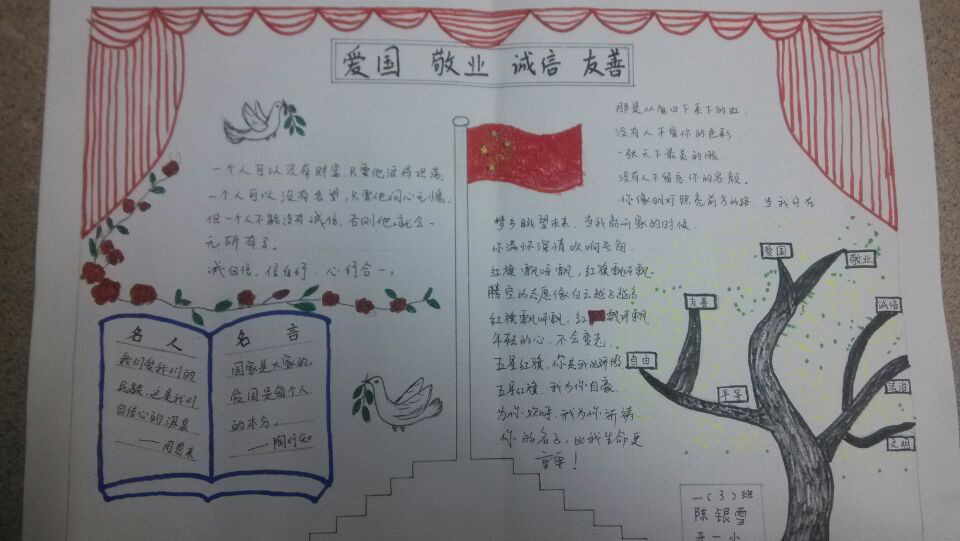 爱国 敬业 诚信 友善
一个人可以没有财富，只要他活得快乐
一个人可以没有名望，只要他问心无愧
但一个人不能没有诚信，否则他就会一
无所有了。
诚自信，信自行，心行合一。
名人
我们爱我们的
民族，这是我们
自信心的源泉
——周恩来
名言
国家是大家的，
爱国是每个人
的本分。
——陶行知
那是从旗
没有人不爱你的色彩
一张天下最美的脸
没有人不留恋你的容颜
你像明灯照亮前方的路
梦乡眺望未来，当我离开家的时候
你满怀深情吹响号角
红旗飘呀飘，红旗飘呀飘
腾空的志愿像白云越飞越高
红旗飘呀飘，红飘呀飘
年轻的心，不会衰老
五星红旗，你是我的骄傲
五星红旗，我为你自豪
为你欢呼，我为你祈祷
你的名字，比我生命更
重要！
爱国
敬业
友善
诚信
自由
平等
法治
文明
一（3）班
陈银雪